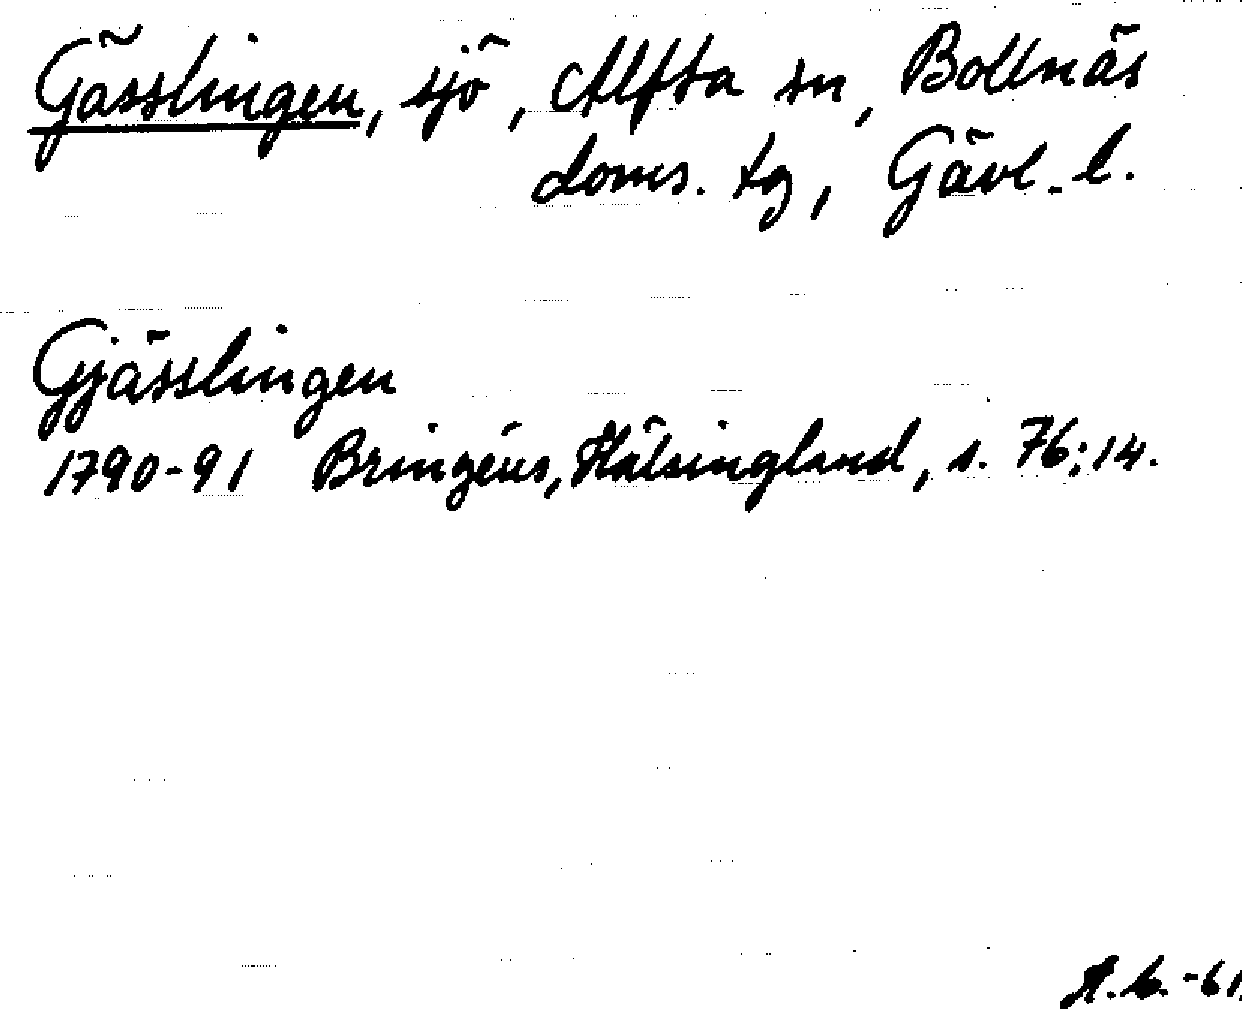 Gässlingen, sjö, Alfta sn, Bollnäs
doms. tg, Gävl. l.
Gjässlingen
1790-91 Bringéus, Hälsingland, s. 76:14.
A.b. -61.